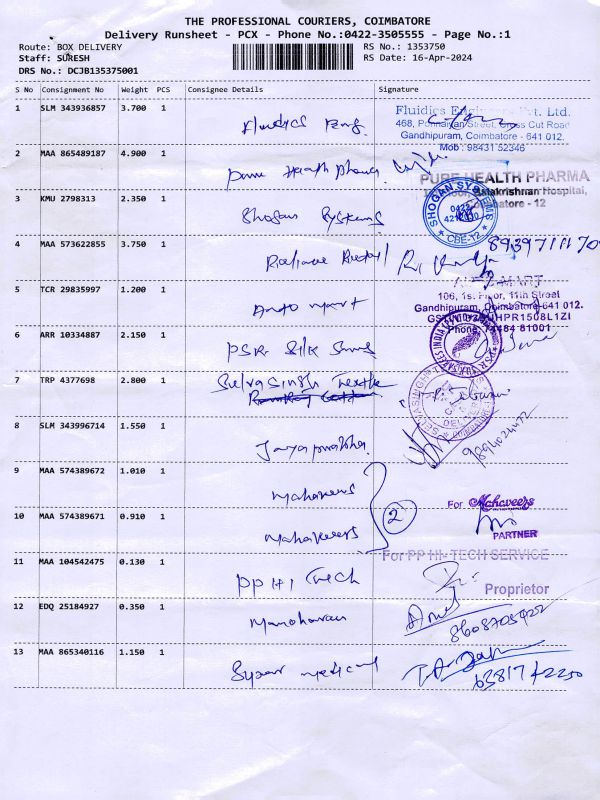 THE PROFESSIONAL COURIERS, COIMBATORE
Delivery Runsheet - PCX - Phone No.:0422-3505555 - Page No.:1
Route: BOX DELIVERY
Staff: SURESH
DRS No.: DCJB135375001
RS No.: 1353750
RS Date: 16-Apr-2024
S No Consignment No Weight PCS Consignee Details Signature
1 SLM 343936857 3.700 1 Fluidics Eng.
Fluidics Engineers Pvt. Ltd.
468, Street, Cross Cut Road
Gandhipuram, Coimbatore - 641 012.
Mob : 98431 52346
2 MAA 865489187 4.900 1 Pure Health Pharma
PURE HEALTH PHARMA
Balakrishnan Hospital,
Coimbatore - 12
3 KMU 2798313 2.350 1 Shogan Systems
SHOGAN SYSTEMS
0422
CBE-12
4 MAA 573622855 3.750 1 Reliance Retail
5 TCR 29835997 1.200 1 Auto mart
MART
106, 1st Floor, 11th Street
Gandhipuram, Coimbatore-641 012.
Phone: 81001
6 ARR 10334887 2.150 1 PSR Silk Sarees
7 TRP 4377698 2.800 1 Selvasingh Textile
8 SLM 343996714 1.550 1 Jayaprabha
9894024472
9 MAA 574389672 1.010 1 Mahaveers
10 MAA 574389671 0.910 1 Mahaveers
2
For Mahaveers
PARTNER
11 MAA 104542475 0.130 1 PP Hi Tech
For PP HI-TECH SERVICE
Proprietor
12 EDQ 25184927 0.350 1 Manoharan
8608705922
13 MAA 865340116 1.150 1 medical
6381742250